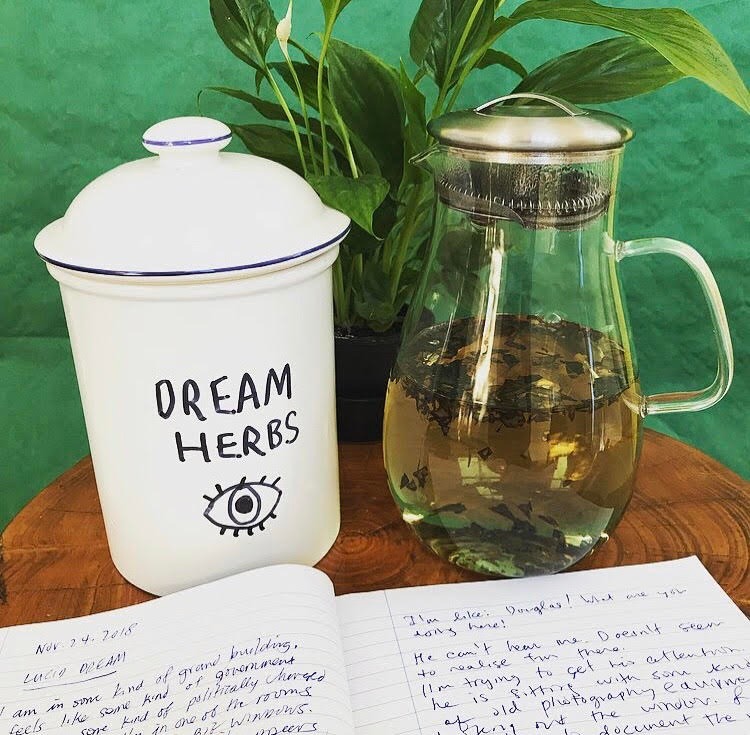 DREAM
HERBS
Nov. 24. 2018
LUCID DREAM
I am in some kind of grand building.
feels like some kind of government
some kind of politically charged
in one of the rooms
BIG WINDOWS.
I'm like: Douglas! What are you
doing here!
He can't hear me. Doesn't seem
to realise I'm there.
I'm trying to get his attention.
he is sitting with some kind
of old photography equipment
out the window.
to document the